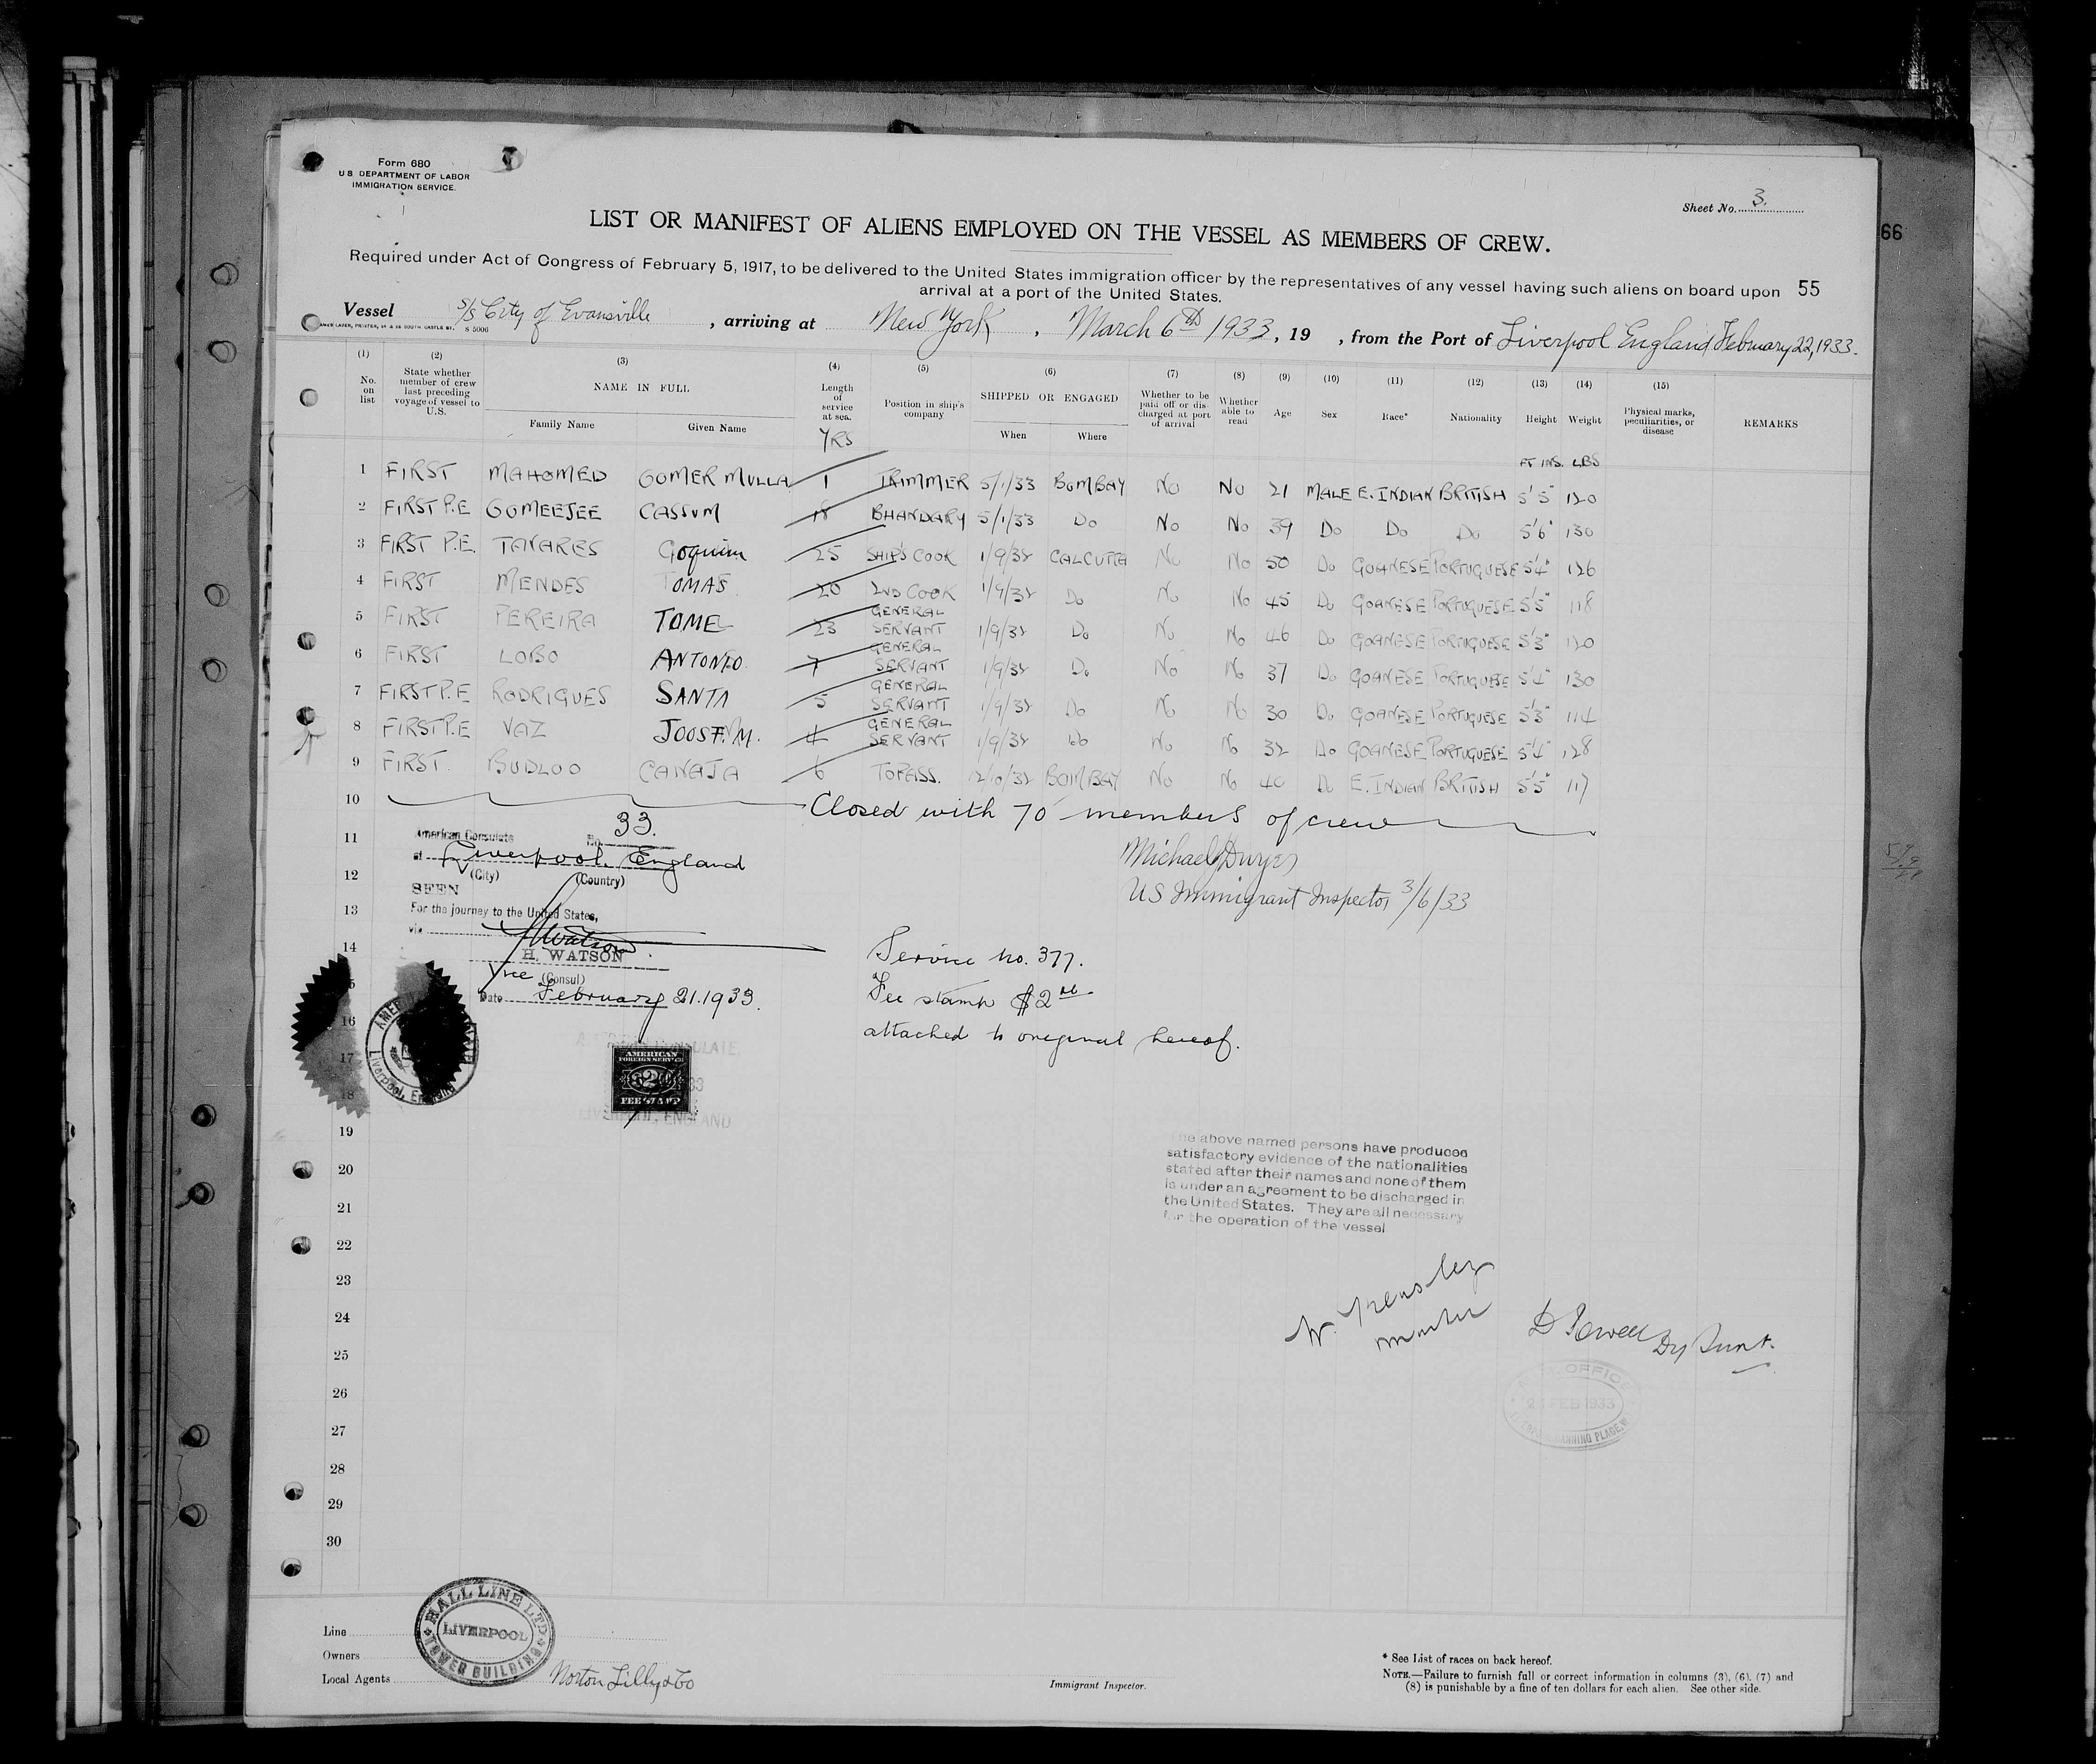 Form 680
U.S. DEPARTMENT OF LABOR
IMMIGRATION SERVICE.
Sheet No. 3.
LIST OR MANIFEST OF ALIENS EMPLOYED ON THE VESSEL AS MEMBERS OF CREW.
66
Required under Act of Congress of February 5, 1917, to be delivered to the United States immigration officer by the representatives of any vessel having such aliens on board upon
arrival at a port of the United States.
55
Vessel S/S City of Evansville, arriving at New York, March 6th 1933, 19 , from the Port of Liverpool England February 22, 1933.
S 5006
(1) (2) (3) (4) (5) (6) (7) (8) (9) (10) (11) (12) (13) (14) (15)
No. on list State whether member of crew last preceding voyage of vessel to U.S. NAME IN FULL Length of service at sea. Position in ship's company SHIPPED OR ENGAGED Whether to be paid off or discharged at port of arrival Whether able to read Age Sex Race* Nationality Height Weight Physical marks, peculiarities, or disease REMARKS
Family Name Given Name YRS When Where
FT INS. LBS
1 FIRST MAHOMED GOMER MULLA 1 TRIMMER 5/1/33 BOMBAY No No 21 MALE E. INDIAN BRITISH 5'5" 120
2 FIRST P.E GOMEEJEE CASSUM 18 BHANDARY 5/1/33 Do No No 39 Do Do Do 5'6" 130
3 FIRST P.E. TAVARES Goquim 25 SHIP'S COOK 1/9/32 CALCUTTA No No 50 Do GOANESE PORTUGUESE 5'4" 126
4 FIRST MENDES TOMAS 20 2ND COOK 1/9/32 Do No No 45 Do GOANESE PORTUGUESE 5'5" 118
5 FIRST PEREIRA TOME 23 GENERAL SERVANT 1/9/32 Do No No 46 Do GOANESE PORTUGUESE 5'3" 120
6 FIRST LOBO ANTONIO 7 GENERAL SERVANT 1/9/32 Do No No 37 Do GOANESE PORTUGUESE 5'4" 130
7 FIRST P.E RODRIGUES SANTA 5 GENERAL SERVANT 1/9/32 Do No No 30 Do GOANESE PORTUGUESE 5'3" 114
8 FIRST P.E VAZ JOOSF. M. 4 GENERAL SERVANT 1/9/32 Do No No 32 Do GOANESE PORTUGUESE 5'4" 128
9 FIRST. BUDLOO CANAJA 6 TOPASS. 12/10/32 BOMBAY No No 40 Do E. INDIAN BRITISH 5'5" 117
10 Closed with 70 members of crew
11
American Consulate No. 33.
at Liverpool, England
(City) (Country)
Michael J Dwyer
US Immigrant Inspector 3/6/33
12
SEEN
13
For the journey to the United States,
via
14
H. WATSON
Vice (Consul)
Date February 21. 1933.
Service No. 377.
Fee stamp $2.00
attached to original hereof.
15
16
17
18
Liverpool, England
AMERICAN CONSULATE,
AMERICAN
FOREIGN SERVICE
$2
FEE STAMP
LIVERPOOL, ENGLAND
19
20
21
22
23
24
25
26
27
28
29
30
The above named persons have produced
satisfactory evidence of the nationalities
stated after their names and none of them
is under an agreement to be discharged in
the United States. They are all necessary
for the operation of the vessel
Master
D Powell Dy Supt.
OFFICE
FEB 1933
CANNING PLACE
HALL LINE LTD
LIVERPOOL
TOWER BUILDING
Line
Owners
Local Agents Norton Lilly & Co
Immigrant Inspector.
* See List of races on back hereof.
NOTE.—Failure to furnish full or correct information in columns (3), (6), (7) and
(8) is punishable by a fine of ten dollars for each alien. See other side.